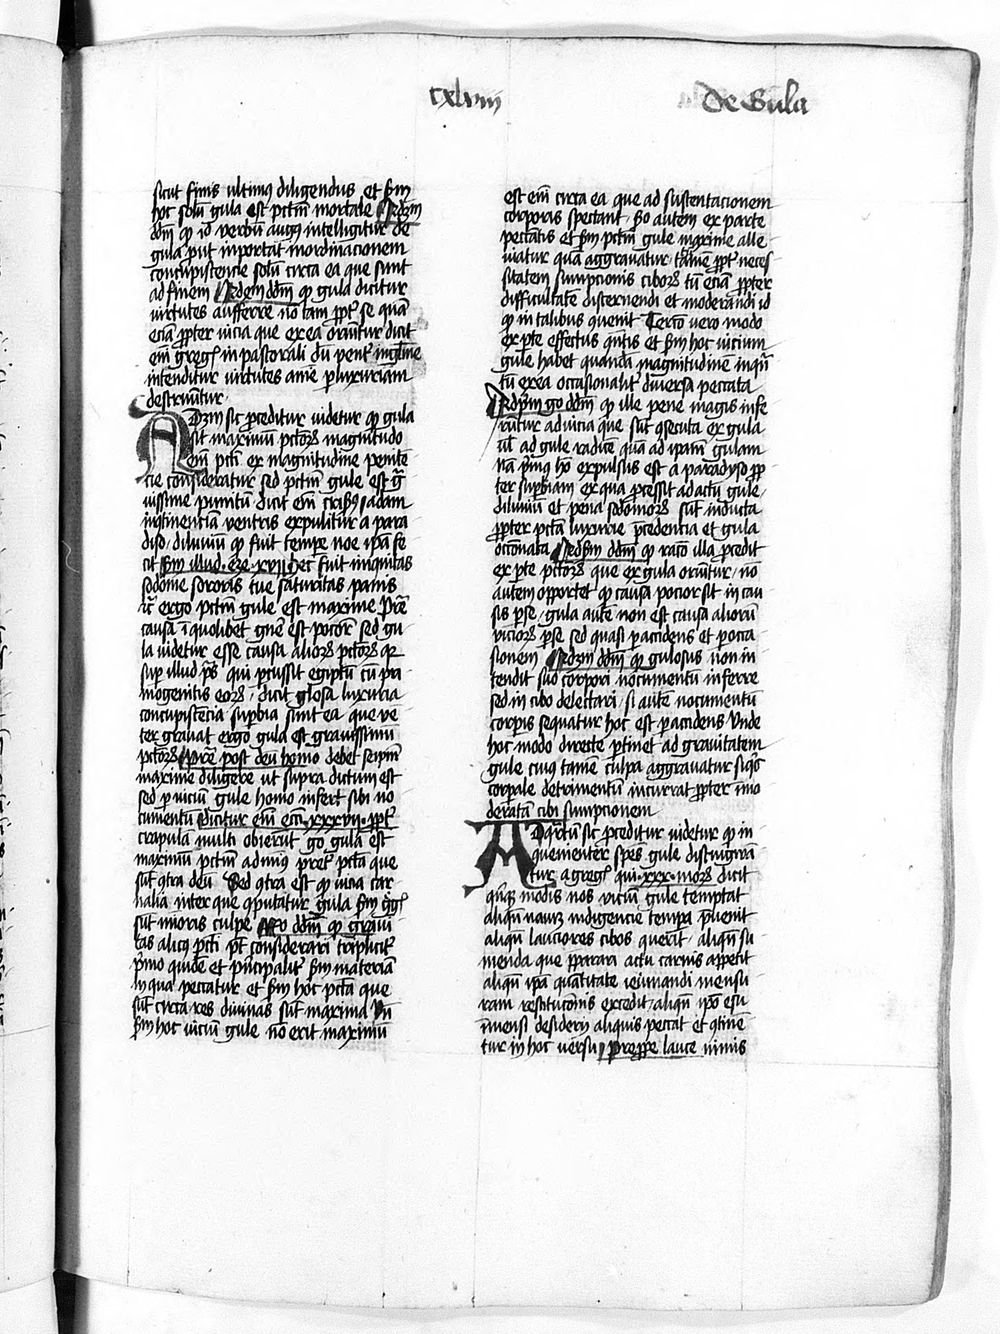 cxlviii
De Gula
sicut finis ultimus diligendus et scdm
hoc solum gula est pctm mortale Ad 2m
ddm q in verbum augus intelligitur de
gula put importat inordinacionem
concupiscencie solum circa ea que sunt
ad finem Ad 3m ddm q gula dicitur
virtutes aufferre no tam ppt se qua
ecia ppter vicia que ex ea oriutur dicit
em greg in pastorali du vent ingluvie
intenditur virtutes anie p luxuriam
destruutur
Ad 3m sic pceditur videtur q gula
sit maximu pctor magnitudo
em pcti ex magnitudine penite
cie consideratur sed pctm gule est g
uissime punitu dicit em crisus adam
incontinentia ventris expulit a para
diso diluuiu q fuit tempe noe ipa fe
cit scdm illud eze xvi hec fuit iniquitas
sodome sororis tue saturitas panis
ergo pctm gule est maxime Pree
causa i quolibet gne est pocior sed gu
la videtur esse causa alior pctor qr
sup illud ps qui pcussit egiptu cu pri
mogenitis eor dicit glosa luxuria
concupiscecia supbia sunt ea que ve
ter gravat ergo gula est gravissimu
pctor Pree post deu homo debet seipm
maxime diligere ut supra dictum est
sed p viciu gule homo infert sibi no
cumentu dicitur em ecci xxxvii ppt
crapula multi obierut go gula est
maximu pctm ad minus pret pcta que
sut contra deu Sed contra est q vicia car
nalia inter que oputatur gula scdm greg
sut minoris culpe Rno ddm q gravi
tas alicus pcti pt considerari triplicit
primo quide et principalit scdm materia
in qua peccatur et scdm hoc pcta que
sut circa res divinas sut maxima Un
scdm hoc viciu gule no erit maximu
est em circa ea que ad sustentacionem
corporis spectant So autem ex parte
peccatis et scdm pctm gule maxime alle
viatur qua aggravatur tame ppt neces
sitatem sumpcionis cibor tu ecia ppter
difficultate discernendi et moderandi id
q in talibus quenit Tercio vero modo
ex pte effectus qntis et scdm hoc vicium
gule habet quanda magnitudine inqn
tu ex ea occasionalit diversa peccata
Ad pm go ddm q ille pene magis infe
rutur ad vicia que sut qsecuta ex gula
ul ad gule radice qua ad ipam gulam
na primo ho expulsus est a paradyso pp
ter supbiam ex qua pcessit ad actu gule
diluuiu et pena sodomor sut inducta
ppter pcta luxurie pcedencia et gula
occonata Ad 2m ddm q raco illa pcedit
ex pte pctor que ex gula oriutur no
autem opportet q causa pocior sit in cau
sis p se gula aute non est causa alioru
vicior p se sed quasi p accidens et p occa
sionem Ad 3m ddm q gulosus non in
tendit suo corpori nocumentu inferre
sed in cibo delectari si aute nocumentu
corpis sequatur hoc est p accidens Unde
hoc modo directe ptinet ad gravitatem
gule cuius tame culpa aggravatur si qs
corpale detrimentu incurrat ppter imo
deratam cibi sumpcionem
Ad quartu sic pceditur videtur q in
quenienter spes gule distingwa
tur a greg qui xxx mor dicit
quinq modis nos vicium gule temptat
aliqn namq indigencie tempa pvenit
aliqn lauciores cibos querit aliqn su
menda que pparari actu carnis appetit
aliqn ipa quantitate ieiunandi mensu
ram refectionis excedit aliqn ipo estu
inmensi desiderii aliquis peccat et qtine
tur in hoc versu prepe laute nimis